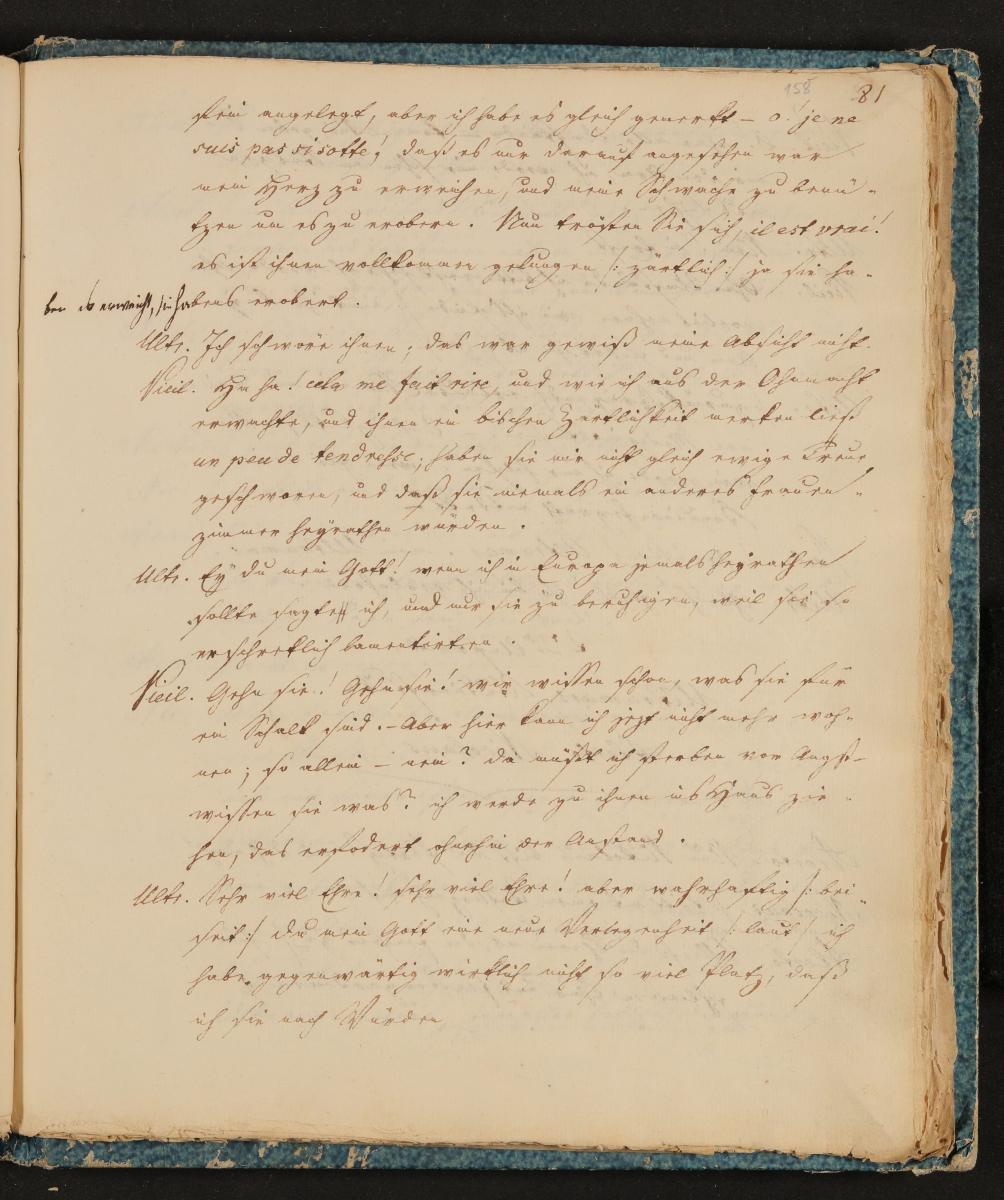 158 81
fein angelegt, aber ich habe es gleich gemerkt – o! je ne
suis pas si sotte! daß es nur darauf angesehen war
mein Herz zu erweichen, und meine Schwäche zu benü-
tzen um es zu erobern. Nun trösten Sie sich, il est vrai!
es ist ihnen vollkommen gelungen /: zärtlich :/ ja sie ha-
ben es erweicht, sie habens erobert.
Ulte. Ich schwöre ihnen, das war gewiß meine Absicht nicht.
Vieil. Ha ha! cela me fait rire, und wie ich aus der Ohnmacht
erwachte, und ihnen ein bischen Zärtlichkeit merken ließ
un peu de tendresse; haben sie mir nicht gleich ewige Treue
geschworen, und daß sie niemals ein anderes Frauen-
zimmer heyrathen würden.
Ulte. Ey du mein Gott! wenn ich in Europa jemals heyrathen
sollte sagte ich, und nur sie zu beruhigen, weil sie so
erschreklich lamentirten.
Vieil. Gehn sie! Gehn sie! wir wissen schon, was sie für
ein Schalk sind. – Aber hier kann ich jezt nicht mehr woh-
nen; so allein – nein? da müßt ich sterben vor Angst –
wissen sie was? ich werde zu ihnen ins Haus zie-
hen, das erfodert ohnehin der Anstand.
Ulte. Sehr viel Ehre! sehr viel Ehre! aber wahrhaftig /: bei-
seit :/ du mein Gott eine neue Verlegenheit /: laut :/ ich
habe gegenwärtig wirklich nicht so viel Platz, daß
ich sie nach Würden